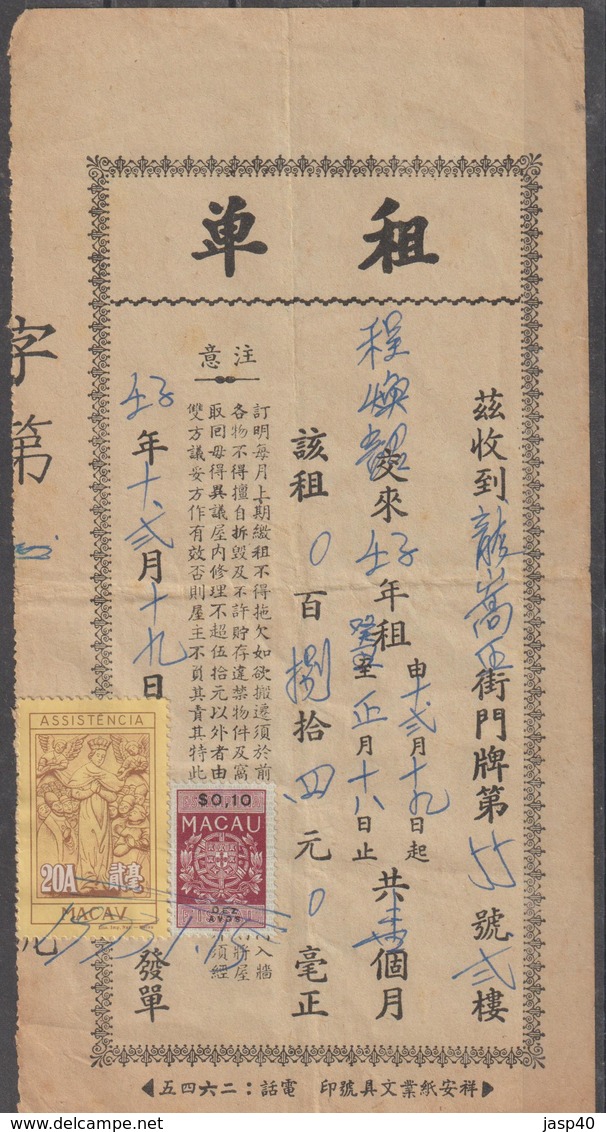 租單
茲收到龍嵩正街門牌第55號弍樓
程煥
交來壬子年租申十弍月十九日起
癸丑至正月十八日止
共壹個月
該租0百捌拾四元0毫正
注意
訂明每月上期繳租不得拖欠如欲搬遷須於前
各物不得擅自拆毀及不許貯存違禁物件及窩
取回毋得異議屋內修理不超伍拾元以外者由
雙方議妥方作有效否則屋主不負其責其特此
入牆
將屋
須經
壬子年十弍月十九日
發單
字第
號
ASSISTÊNCIA
20A
貳毫
MACAU
$0,10
MACAU
DEZ
AVOS
祥安紙業文具號印 電話：二六四五
jasp40